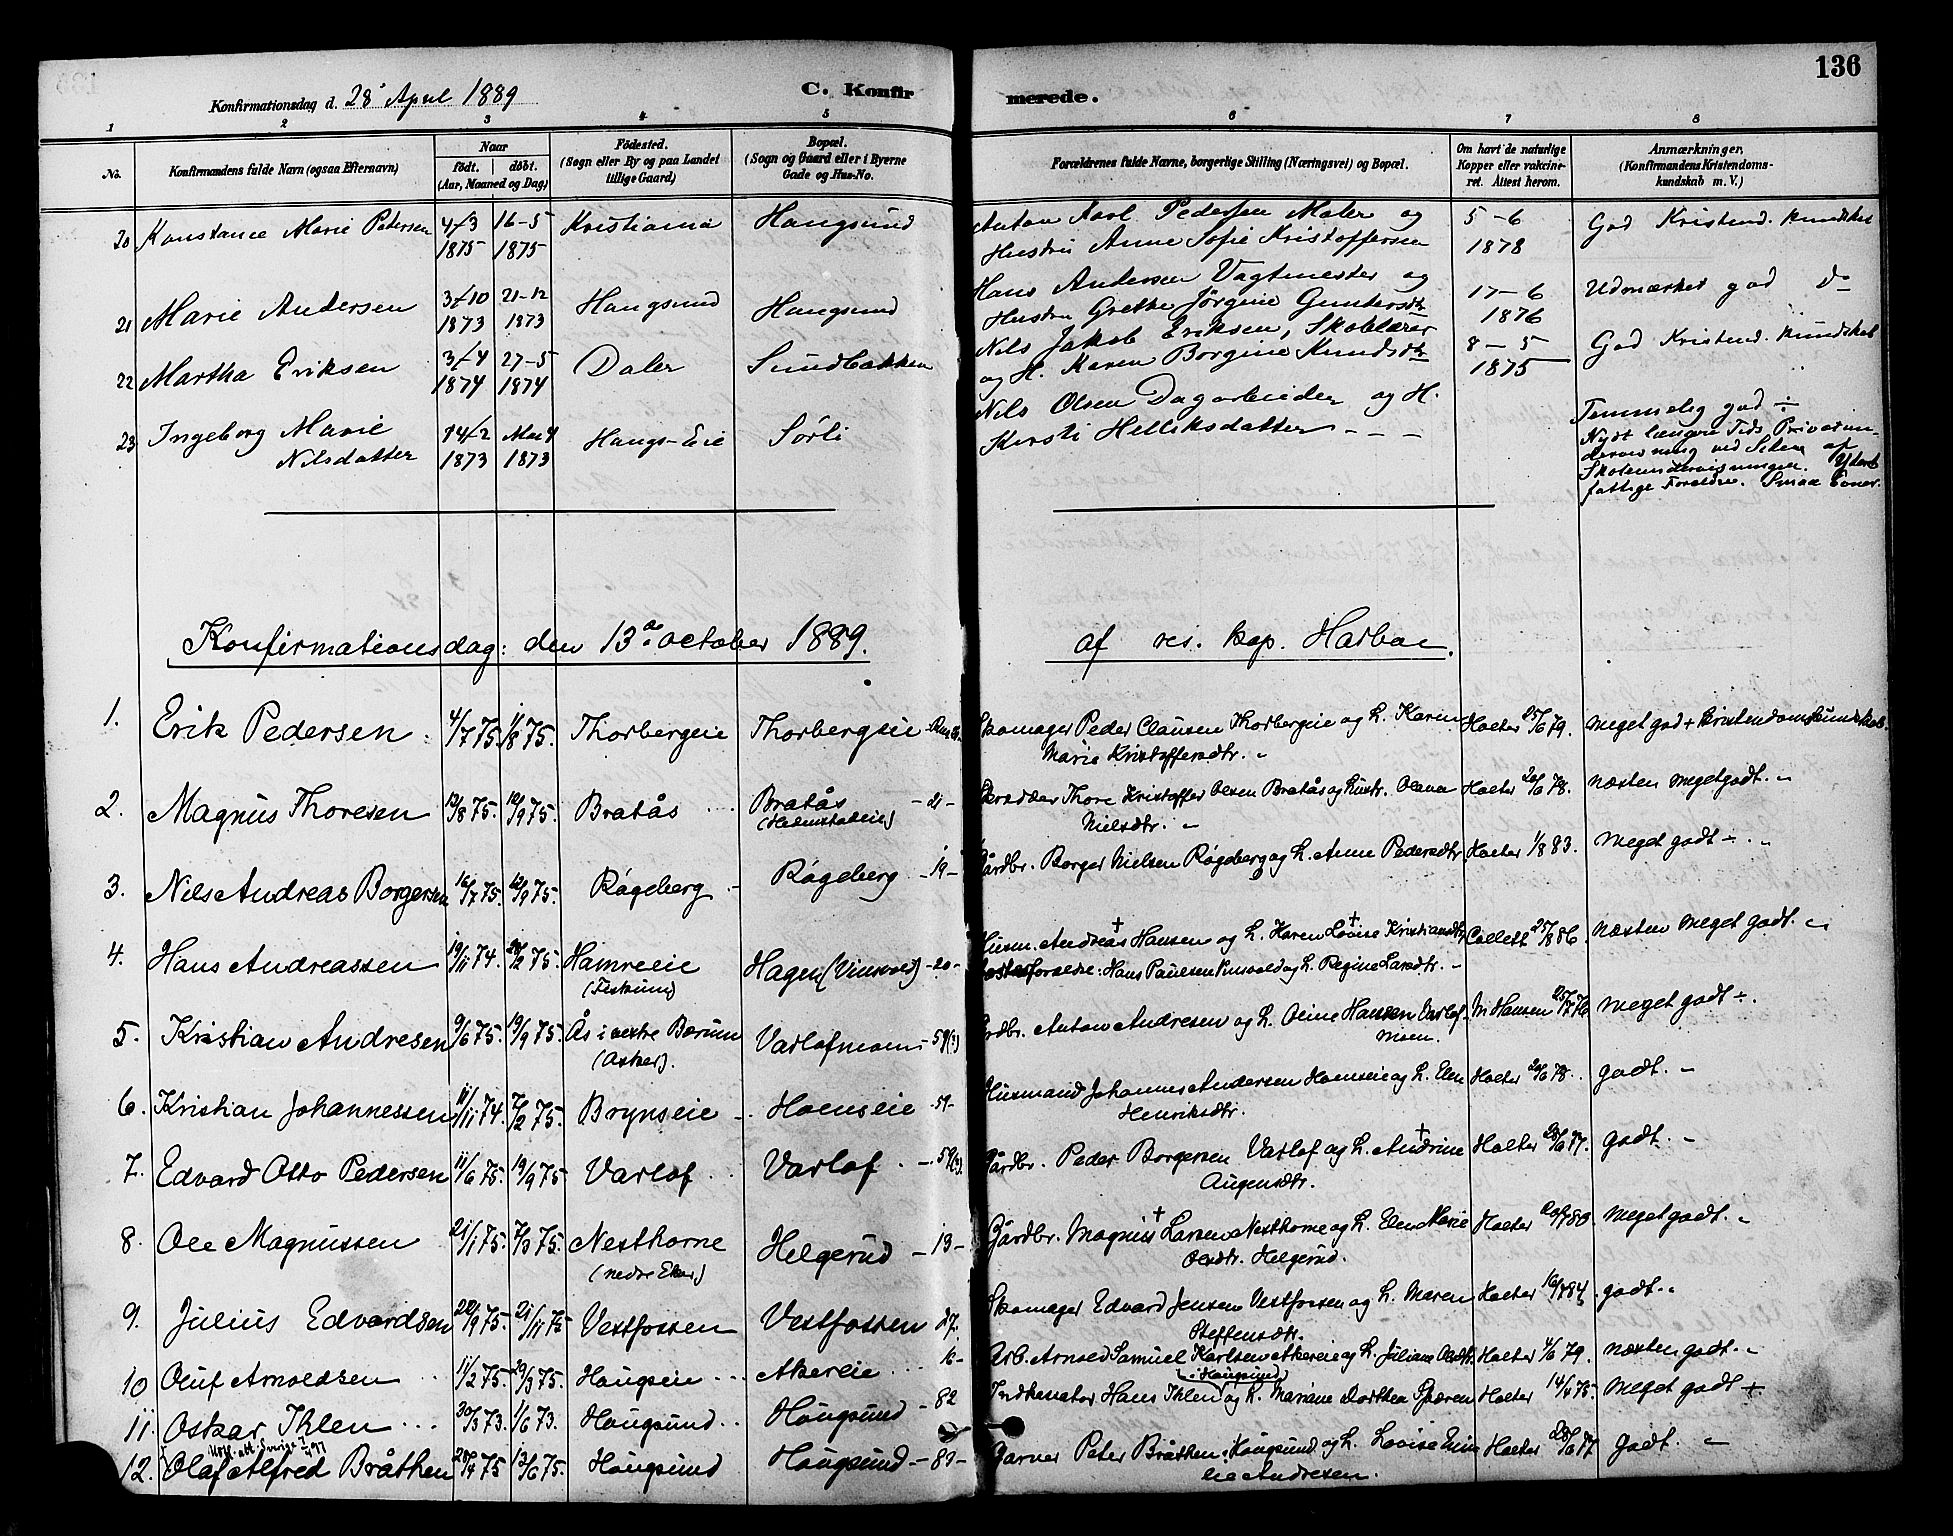 136
Konfirmationsdag d. 28de April 1889
C. Konfirmerede.
1 2 3 4 5 6 7 8
No. Konfirmandens fulde Navn (ogsaa Efternavn) Naar født. døbt. (Aar, Maaned og Dag) Fødested. (Sogn eller By og paa Landet tillige Gaard) Bopæl. (Sogn og Gaard eller i Byerne Gade og Hus-No. Forældrenes fulde Navne, borgerlige Stilling (Næringsvei) og Bopæl. Om havt de naturlige Kopper eller vakcineret. Attest herom. Anmærkninger, (Konfirmandens Kristendomskundskab m. V.)
20 Konstance Marie Petersen 4-3 1875 16-5 1875 Kristiania Hougsund Anton Karl Pedersen Maler og Hustru Anne Sofie Kristoffersen 5-6 1878 God Kristend. kundskab
21 Marie Andersen 3-10 1873 21-12 1873 Hougsund Hougsund Hans Andersen Vagtmester og Hustru Grethe Jørgine Gundersdtr 17-6 1876 Udmærket god do
22 Martha Eriksen 3-4 1874 27-5 1874 Daler Sundbakken Nils Jakob Eriksen, Skolelærer og H. Karen Borgine Knudsdtr 8-5 1875 God Kristend. kundskab
23 Ingeborg Marie Nilsdatter 14-2 1873 Mai 4 1873 Hougs-Eie Sørli Nils Olsen Dagarbeider og H. Kirsti Helliksdatter - - - Temmelig god ÷
Nydt længere Tids Privatundervisning ved Siden af Skoleundervisningen. Yderst fattige Forældre. Smaa Evner.
Konfirmationsdag: den 13de october 1889. af res. kap. Harboe.
1. Erik Pedersen. 4/7 75 1/8 75. Thorbergeie Thorbergeie Skomager Peder Clausen Thorbergeie og h. Karen Marie Kristoffersdtr. Holter 25/6 79. meget god + kristendomskundskab.
2. Magnus Thoresen 13/8 75. 12/9 75. Bratås Bratås - 21 - Skrædder Thore Kristoffer Olsen Bratås og hustr. Olava Nielsdtr. Holter 20/6 78. næsten megetgodt. "
3. Nils Andreas Borgersen 16/7 75. 12/9 75. Røgeberg Røgeberg - 19 - Gårdbr. Borger Nielsen Røgeberg og h. Anne Pedersdtr Holter 1/8 83. meget godt ÷ "
4. Hans Andreassen 19/11 74. 28/2 75. Hamreeie (Fiskum) Hagen (Vinsvold) - 20 - Husm. Andreas Hansen og h. Karen Lovise Kristiansdtr. Fosterforældre: Hans Paulsen Vinsvold og h. Regine Larsdtr. Collett 25/8 86. næsten meget godt. "
5. Kristian Andresen 9/6 75. 19/9 75. Ås i vestre Bærum (Asker). Varlofmoen - 59(3) Anton Andresen og h. Oline Hansen Varlofmoen. M Hansen 25/7 76 meget godt ÷.
6. Kristian Johannessen 11/11 74. 7/2 75. Brynseie Hoenseie 59- Husmand Johannes Andersen Hoenseie og h. Elen Henriksdtr. Holter 20/6 78. godt. "
7. Edvard Otto Pedersen 11/6 75. 19/9 75 Varlof Varlof - 59(3). Gårdbr. Peder Borgersen Varlof og h. Andrine Augensdtr. Holter 28/6 77. godt. "
8. Ole Magnussen 21/1 75. 7/3 75. Nesthorne (nedre Eker) Helgerud - 13 - Gårdbr. Magnus Larsen Nesthorne og h. Elen Marie Olsdtr. Helgerud. Holter 20/7 80. megetgodt. "
9. Julius Edvardsen 22/9 75. 21/11 75 Vestfossen Vestfossen 27. Skomager Edvard Jensen Vestfossen og h. Maren Steffensdtr. Holter 16/7 84. godt. "
10 Oluf Arnoldsen 11/2 75. 29/3 75. Hougseie Akereie 16- Arb. Arnold Samuel Karlsen Akereie og h. Juliane Olsdtr. Holter 4/6 79. næsten godt. "
11. Oskar Ihlen 30/3 73. 1/6 73. Hougsund Hougsund - 82 Hans Ihlen (Hougsund) og h. Mariane Dorthea Spæren Holter 14/6 75. meget godt ÷
12. Olaf Alfred Bråthen 25/4 75 13/6 75. Hougsund Hougsund - 89 - Garver Peter Bråthen, Hougsund og h. Lovise Emilie Andresen. Holter 28/6 77. godt. "